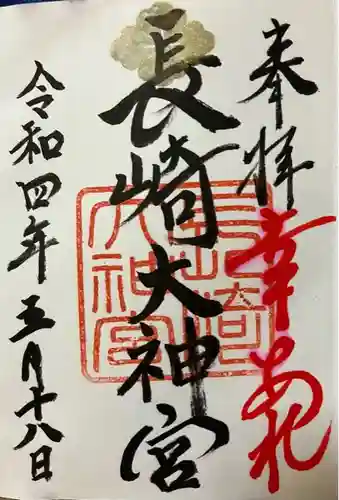 奉拝
幸あれ
長崎大神宮
長崎大神宮
令和四年五月十八日